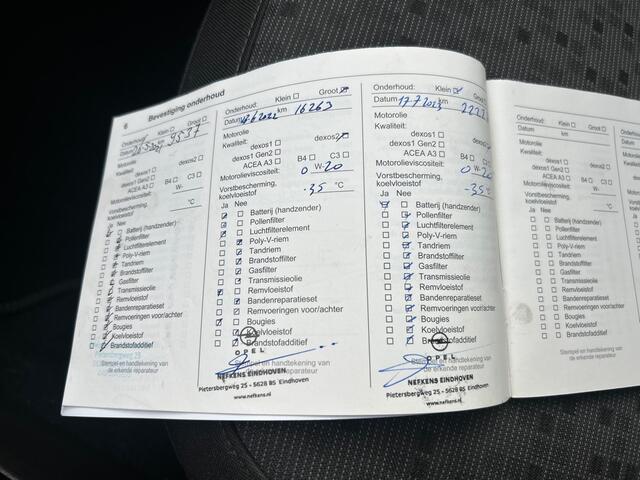 6 Bevestiging onderhoud
Onderhoud: Klein Groot
Datum km
Motorolie
Kwaliteit:
dexos1 dexos2
dexos1 Gen2
ACEA A3 B4 C3
Motorolieviscositeit: W-
Vorstbescherming,
koelvloeistof °C
Ja Nee
Batterij (handzender)
Pollenfilter
Luchtfilterelement
Poly-V-riem
Tandriem
Brandstoffilter
Gasfilter
Transmissieolie
Remvloeistof
Bandenreparatieset
Remvoeringen voor/achter
Bougies
Koelvloeistof
Brandstofadditief
Pietersbergweg 25
Stempel en handtekening van
de erkende reparateur
Onderhoud: Klein Groot
Datum km 16263
Motorolie
Kwaliteit:
dexos1 dexos2
dexos1 Gen2
ACEA A3 B4 C3
Motorolieviscositeit: 0 W-20
Vorstbescherming,
koelvloeistof -35 °C
Ja Nee
Batterij (handzender)
Pollenfilter
Luchtfilterelement
Poly-V-riem
Tandriem
Brandstoffilter
Gasfilter
Transmissieolie
Remvloeistof
Bandenreparatieset
Remvoeringen voor/achter
Bougies
Koelvloeistof
Brandstofadditief
OPEL
Stempel en handtekening van
de erkende reparateur
NEFKENS EINDHOVEN
Pietersbergweg 25 - 5628 BS Eindhoven
www.nefkens.nl
Onderhoud: Klein Groot
Datum 17.7.2023 km
Motorolie
Kwaliteit:
dexos1
dexos1 Gen2
ACEA A3 B4
Motorolieviscositeit: 0 W-20
Vorstbescherming,
koelvloeistof -35 °C
Ja Nee
Batterij (handzender)
Pollenfilter
Luchtfilterelement
Poly-V-riem
Tandriem
Brandstoffilter
Gasfilter
Transmissieolie
Remvloeistof
Bandenreparatieset
Remvoeringen voor/achter
Bougies
Koelvloeistof
Brandstofadditief
OPEL
Stempel en handtekening van
de erkende reparateur
NEFKENS EINDHOVEN
Pietersbergweg 25 - 5628 BS Eindhoven
www.nefkens.nl
Onderhoud: Klein Groot
Datum km
Motorolie
Kwaliteit:
dexos1 dexos2
dexos1 Gen2
ACEA A3 B4 C3
Motorolieviscositeit: W-
Vorstbescherming,
koelvloeistof °C
Ja Nee
Batterij (handzender)
Pollenfilter
Luchtfilterelement
Poly-V-riem
Tandriem
Brandstoffilter
Gasfilter
Transmissieolie
Remvloeistof
Bandenreparatieset
Remvoeringen voor/achter
Bougies
Koelvloeistof
Brandstofadditief
Stempel en handtekening van
de erkende reparateur